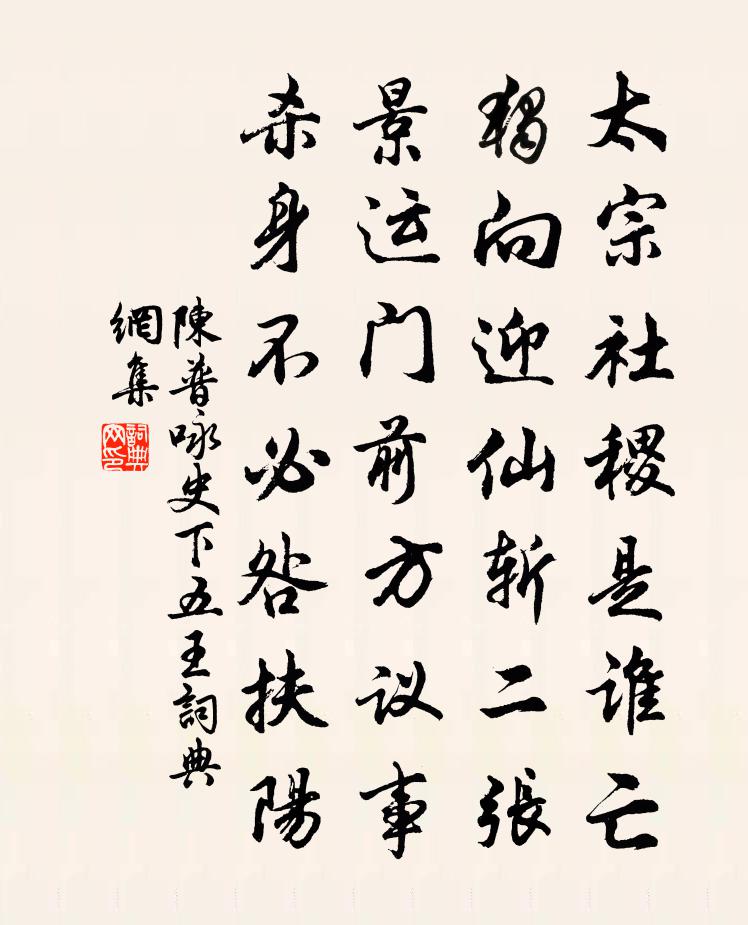 太宗社稷是谁亡
独向迎仙斩二张
景运门前方议事
杀身不必咎扶陽
陳普咏史下五王詞典
網集
詞典網印